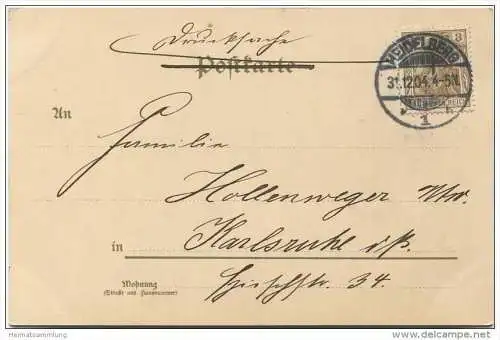 Drucksache
Postkarte
3
HEIDELBERG
31.12.04. 4-5N.
1.
An
Familie
Hollenweger
in Karlsruhe i/B.
Wohnung
(Straße und Hausnummer)
Hirschstr. 34.
Heimatsammlung
delcampe.net